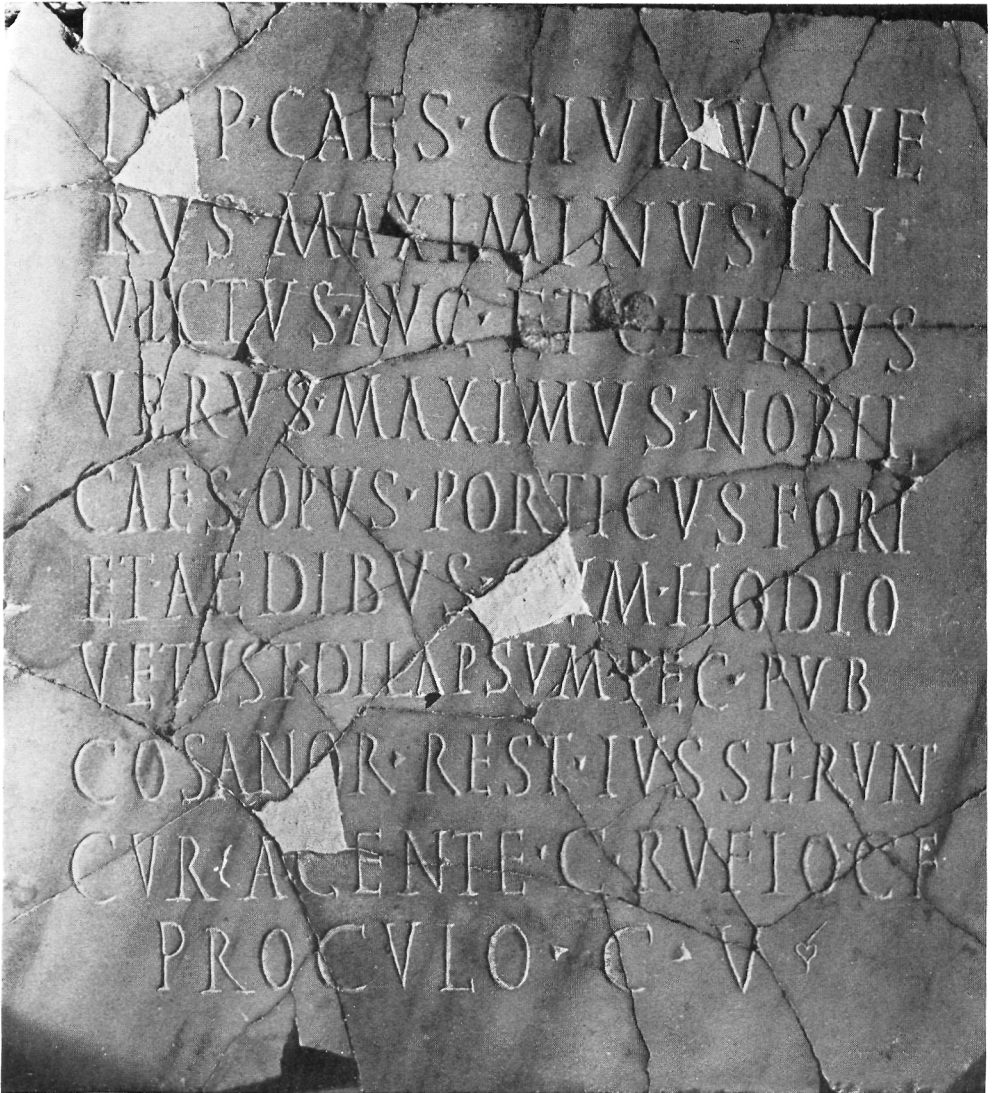 P·CAES·C·IVLIVS VE
RVS·MAXIMINVS·IN
VICTVS·AVG·ET C·IVLIVS
VERVS·MAXIMVS·NOBIL
CAES·OPVS·PORTICVS FORI
ET·AEDIBVS HODIO
VETVST·DILAPSVM·PEC·PVB
COSANOR·REST·IVSSERVNT
CVR·AGENTE·C·RVFIO·CF
PROCVLO·C·V